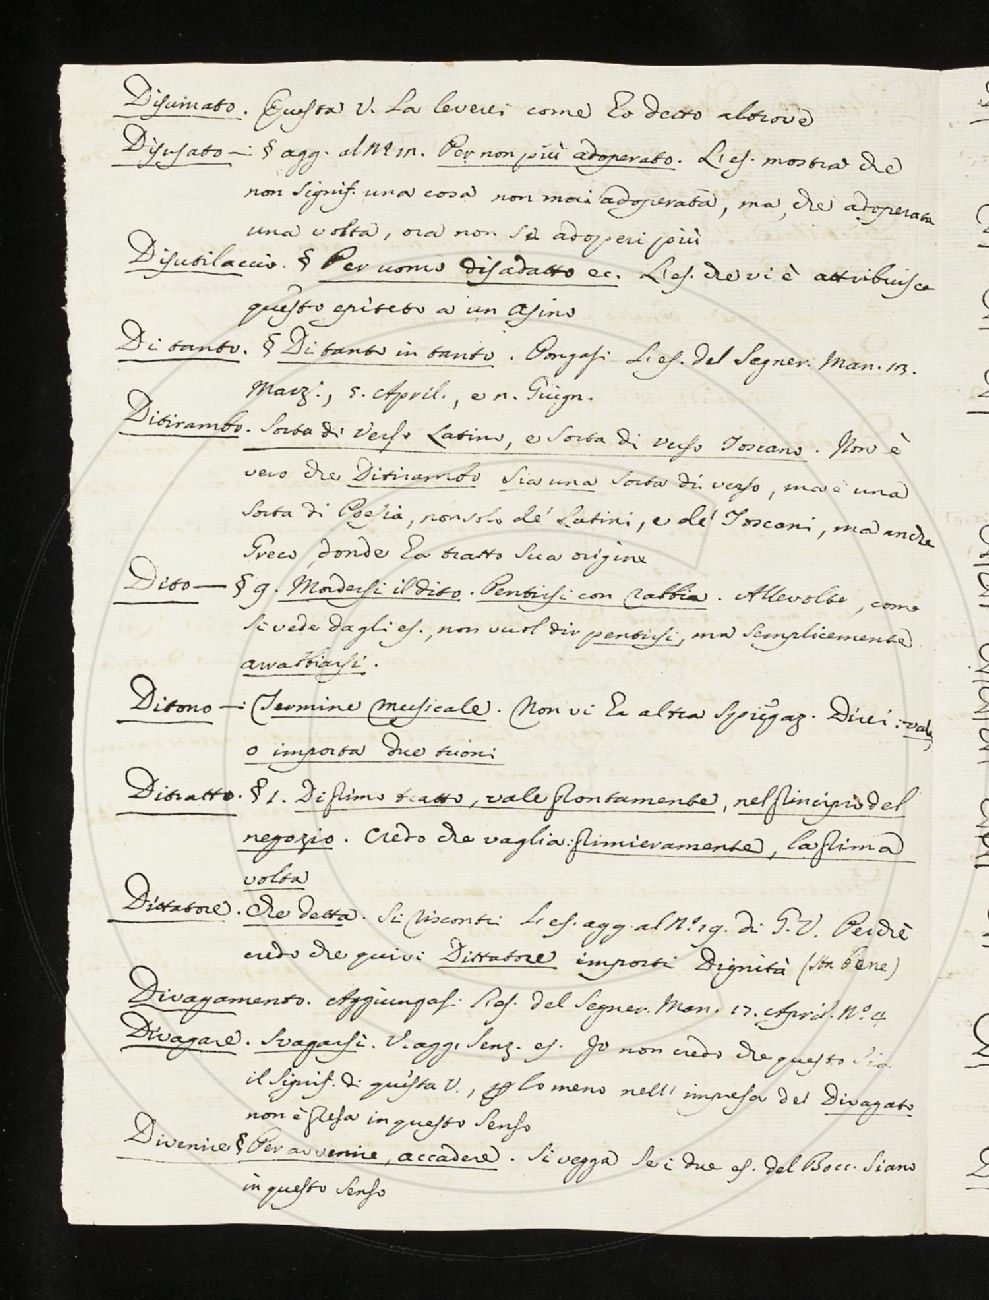 Disumato. Questa V. La leverei come ho detto altrove
Disusato —: § agg. al N.o III. Per non più adoperato. L'es. mostra che
non signif. una cosa non mai adoperata, ma, che adoperata
una volta, ora non si adoperi più
Disutilaccio. § Per uomo disadatto ec. L'es. che vi è attribuisce
questo epiteto a un Asino
Di tanto. § Di tanto in tanto. Pongasi L'es. del Segner. Man. 13.
Marz., 5. April., e 11. Giugn.
Ditirambo. Sorta di Verso Latino, e Sorta di verso Toscano. Non è
vero che Ditirambo sia una sorta di verso, ma è una
sorta di Poesia, non solo de' Latini, e de' Toscani, ma anche
Greco donde ha tratto sua origine
Dito — § 9. Mordersi il dito. Pentirsi con rabbia. Allevolte, come
si vede dagli es., non vuol dir pentirsi, ma semplicemente
arrabbiarsi.
Ditono —: Termine Musicale. Non vi ha altra spiegaz. Direi: vale,
o importa due tuoni
Ditratto. § 1. Di primo tratto, vale prontamente, nel principio del
negozio. Credo che vaglia: primieramente, la prima
volta
Dittatore. Che detta. Si riscontri L'es. agg. al N.o 19. di G. V. Perchè
credo che quivi Dittatore importi Dignità (sta bene)
Divagamento. Aggiungasi l'es. del Segner. Man. 17. April. N.o 4
Divagare. Svagarsi. V. agg. senz. es. Io non credo che questo sia
il signif. di questa V., lo meno nell' impresa del Divagato
non è presa in questo senso
Divenire § Per avvenire, accadere. Si vegga se i due es. del Bocc. siano
in questo senso